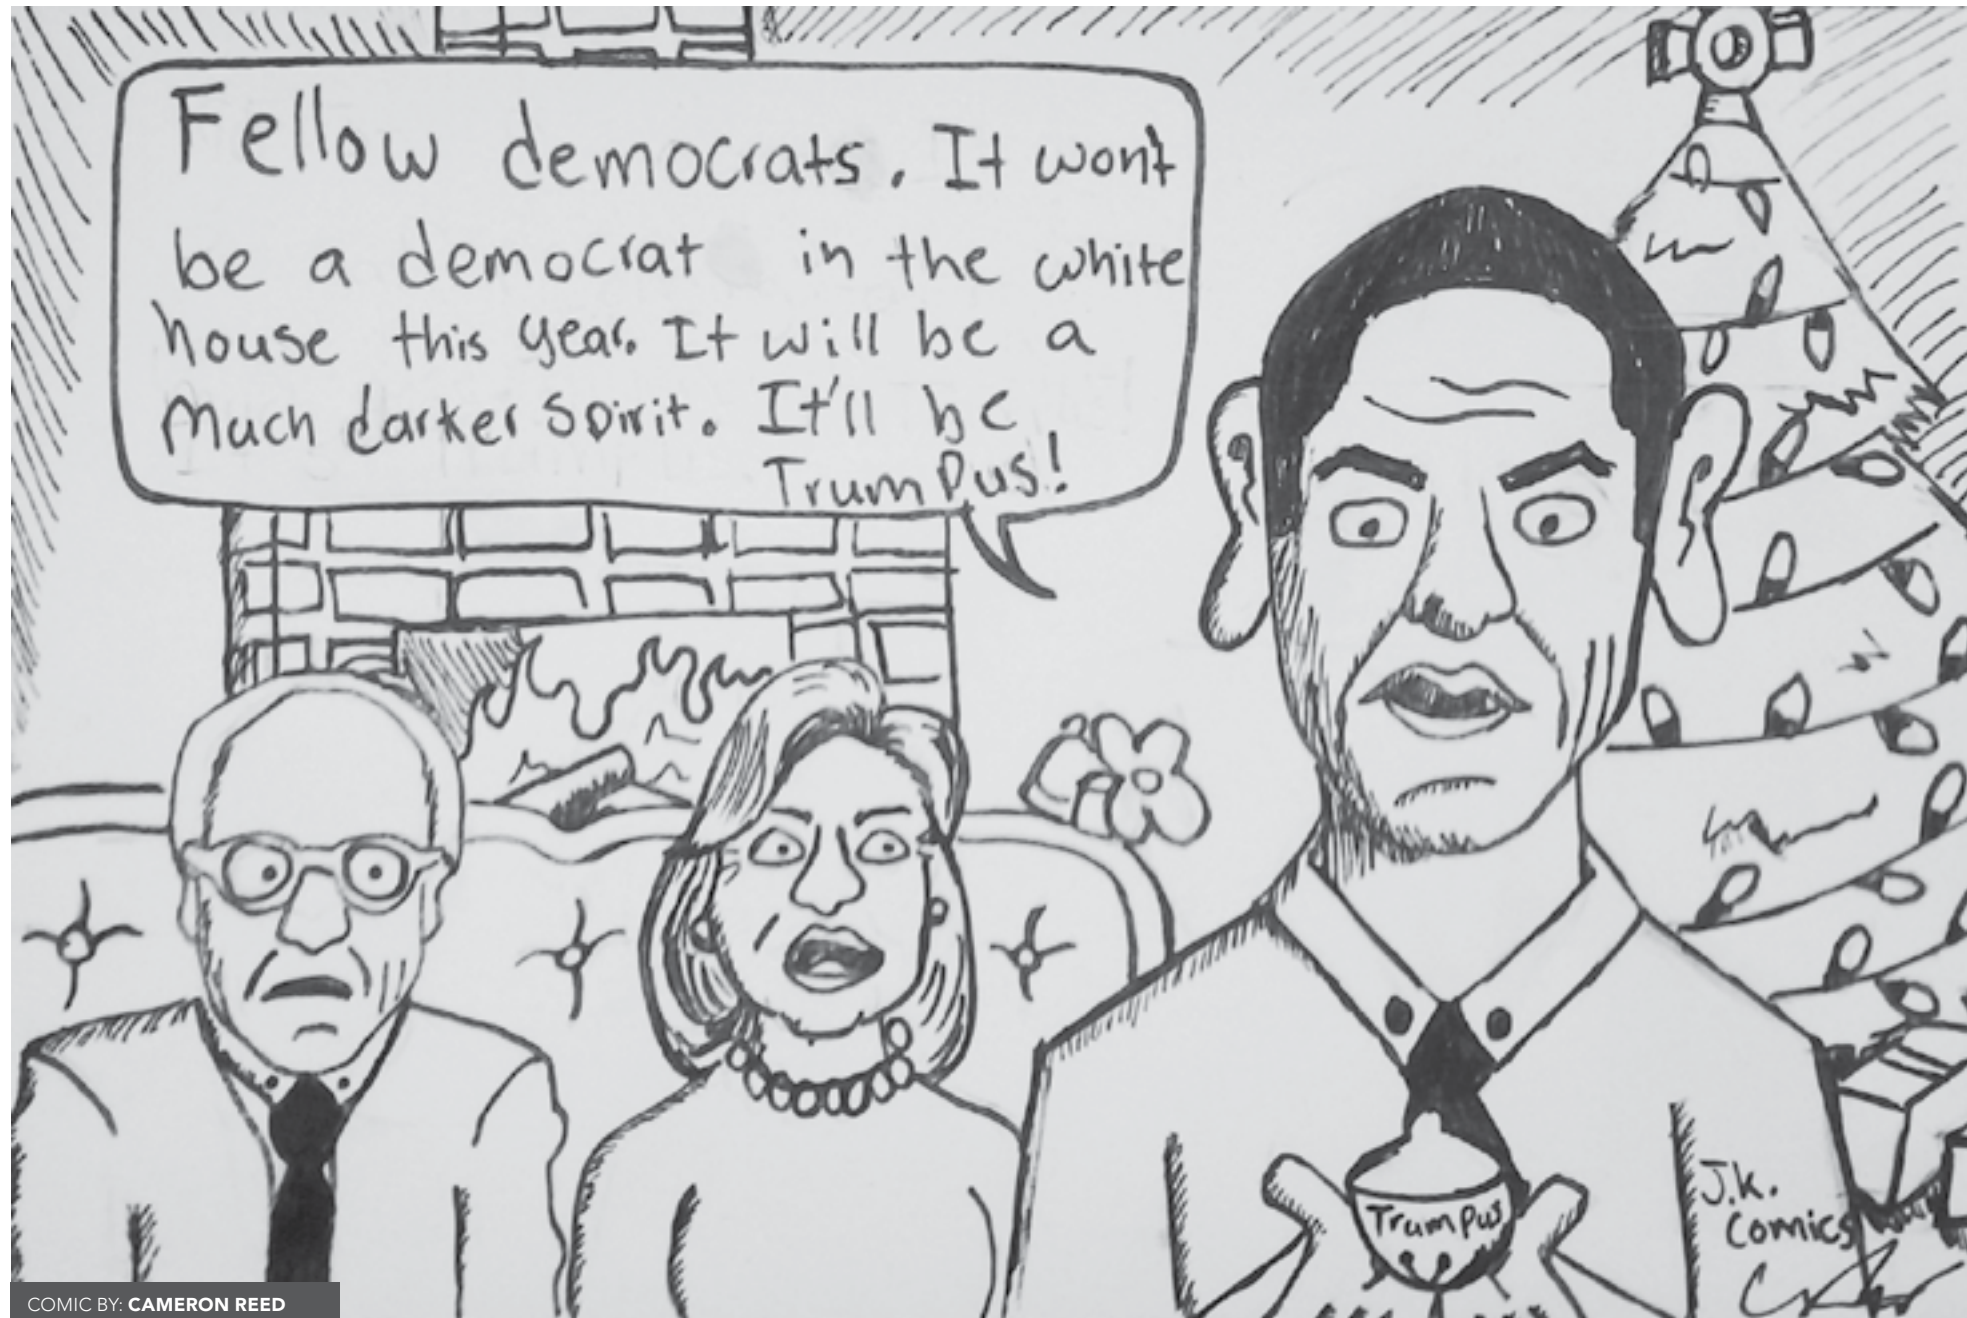 Fellow democrats. It won't
be a democrat in the white
house this year. It will be a
Much darker spirit. It'll be
Trumpus!
Trumpus
J.K.
Comics
COMIC BY: CAMERON REED